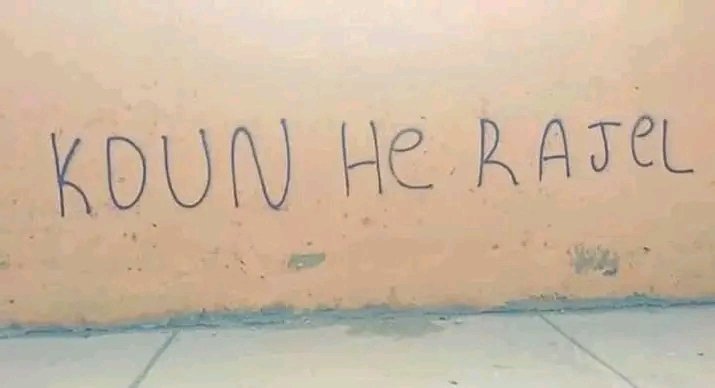 KOUN He RAJeL